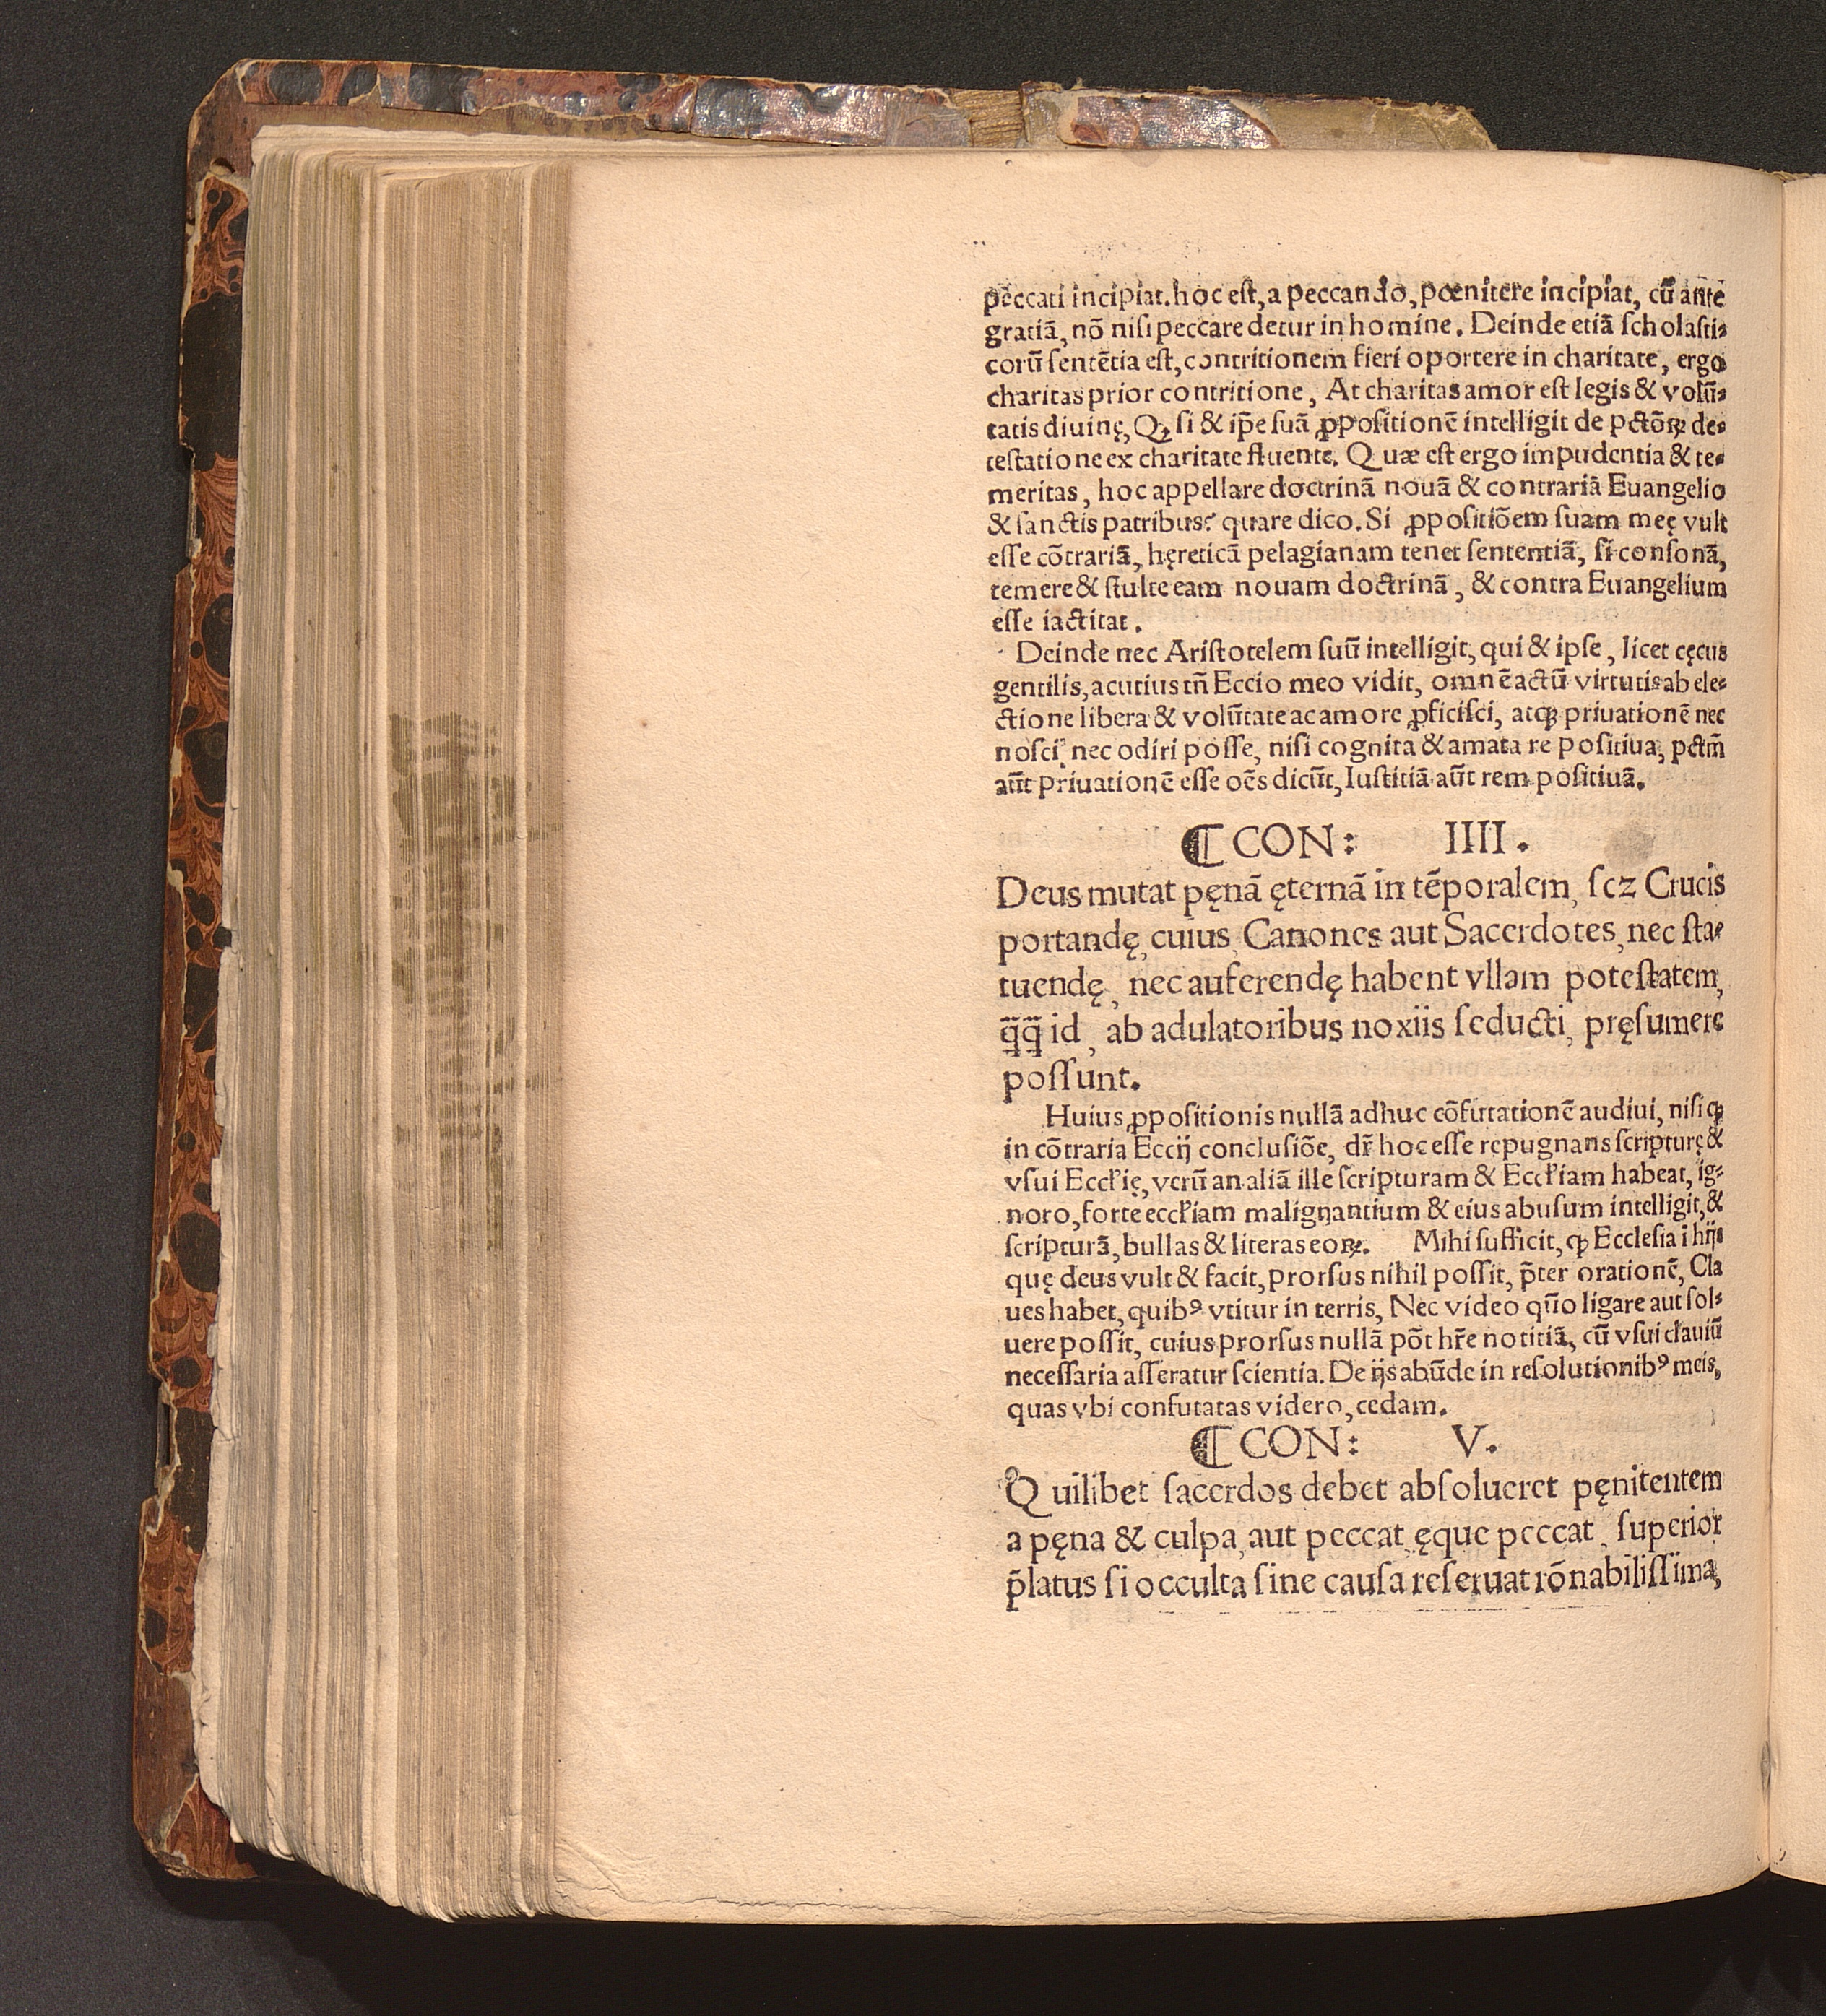 peccati incipiat. hoc est, a peccando, pœnitere incipiat, cū ante
gratiā, nō nisi peccare detur in homine. Deinde etiā scholasti-
corū sentētia est, contritionem fieri oportere in charitate, ergo
charitas prior contritione, At charitas amor est legis & volū-
tatis diuinę, Qꝫ si & ip̄e suā ꝓpositionē intelligit de pctōꝝ de-
testatione ex charitate fluente. Quæ est ergo impudentia & te-
meritas, hoc appellare doctrinā nouā & contrariā Euangelio
& sanctis patribus? quare dico. Si ꝓpositiōem suam meę vult
esse cōtrariā, hęreticā pelagianam tenet sententiā, si consonā,
temere & stulte eam nouam doctrinā, & contra Euangelium
esse iactitat.
Deinde nec Aristotelem suū intelligit, qui & ipse, licet cęcus
gentilis, acutius tn̄ Eccio meo vidit, omnē actū virtutis ab ele-
ctione libera & volūtate ac amore ꝓficisci, atqꝫ priuationē nec
nosci, nec odiri posse, nisi cognita & amata re positiua, pctm̄
aūt priuationē esse oēs dicūt, Iustitiā aūt rem positiuā.
⸿ CON: IIII.
Deus mutat pęnā ęternā in tēporalem, scz Crucis
portandę, cuius, Canones aut Sacerdotes, nec sta-
tuendę, nec auferendę habent vllam potestatem,
q̄q̄ id, ab adulatoribus noxiis seducti, pręsumere
possunt.
Huius ꝓpositionis nullā adhuc cōfutationē audiui, nisi ꝙ
in cōtraria Eccij conclusiōe, dr̄ hoc esse repugnans scripturę &
vsui Eccl̄ię, verū an aliā ille scripturam & Eccl̄iam habeat, ig-
noro, forte eccl̄iam malignantium & eius abusum intelligit, &
scripturā, bullas & literas eoꝝ. Mihi sufficit, ꝙ Ecclesia ī hijs
quę deus vult & facit, prorsus nihil possit, p̄ter orationē, Cla
ues habet, quibꝰ vtitur in terris, Nec video quō ligare aut sol-
uere possit, cuius prorsus nullā pōt hr̄e notitiā, cū vsui clauiū
necessaria asseratur scientia. De ijs abūde in resolutionibꝰ meis,
quas vbi confutatas videro, cedam.
⸿ CON: V.
Quilibet sacerdos debet absoluere pęnitentem
a pęna & culpa, aut peccat, ęque peccat, superior
p̄latus si occulta sine causa reseruat rōnabilissima,